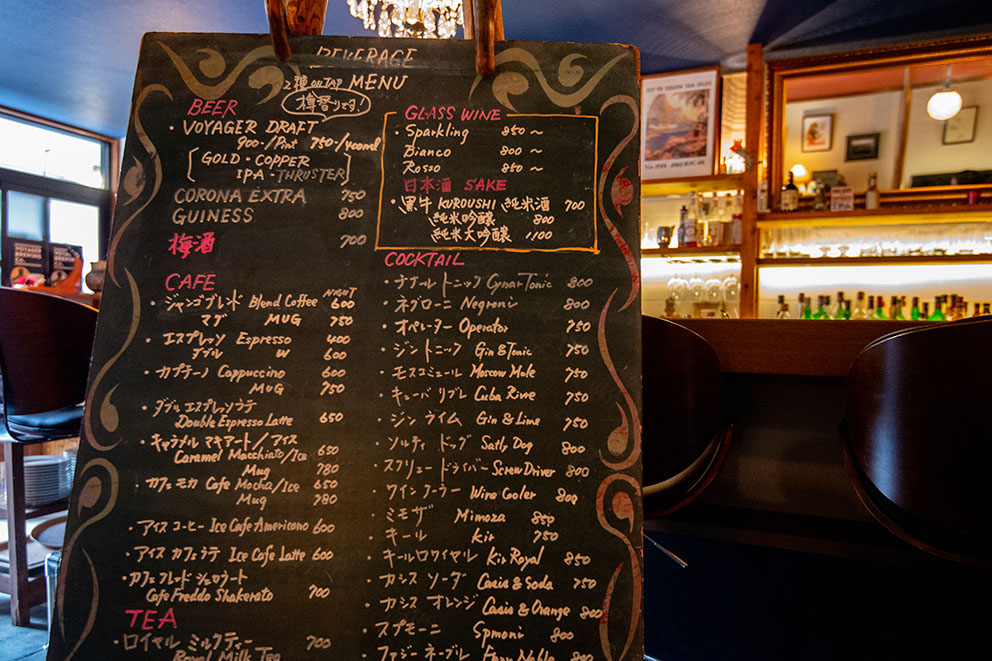 BEVERAGE
MENU
2種 on TAP
樽替りです!
BEER
・VOYAGER DRAFT
900-/Pint 750-/400ml
[GOLD・COPPER
IPA・THRUSTER]
CORONA EXTRA 750
GUINESS 800
梅酒 700
CAFE
NIGHT
・ジャンゴブレンド Blend Coffee 600
マグ MUG 750
・エスプレッソ Espresso 400
ダブル W 600
・カプチーノ Cappuccino 600
MUG 750
・ダブルエスプレッソラテ
Double Espresso Latte 650
・キャラメルマキアート/アイス
Caramel Macchiato/Ice 650
Mug 780
・カフェモカ Cafe Mocha/Ice 650
Mug 780
・アイスコーヒー Ice Cafe Americano 600
・アイスカフェラテ Ice Cafe Latte 600
・カフェフレッドシェロラート
Cafe Freddo Shakerato 700
TEA
・ロイヤルミルクティー 700
Royal Milk Tea
GLASS WINE
・Sparkling 850〜
Bianco 800〜
Rosso 850〜
日本酒 SAKE
・黒牛 KUROUSHI 純米酒 700
純米吟醸 800
純米大吟醸 1100
COCKTAIL
・チナールトニック Cynar Tonic 800
・ネグローニ Negroni 800
・オペレーター Operator 750
・ジントニック Gin & Tonic 750
・モスコミュール Moscow Mule 750
・キューバリブレ Cuba Rivre 750
・ジンライム Gin & Lime 750
・ソルティドッグ Satly Dog 800
・スクリュードライバー Screw Driver 800
・ワインクーラー Wine Cooler 800
・ミモザ Mimoza 850
・キール kir 750
・キールロワイヤル Kir Royal 850
・カシスソーダ Casis & Soda 750
・カシスオレンジ Casis & Orange 800
・スプモーニ Spmoni 800
・ファジーネーブル Fuzzy Nable 800
VOYAGER
BREWING
CO.